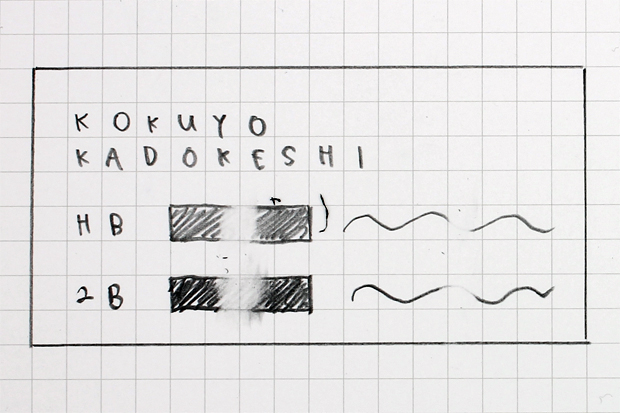 KOKUYO
KADOKESHI
HB
2B